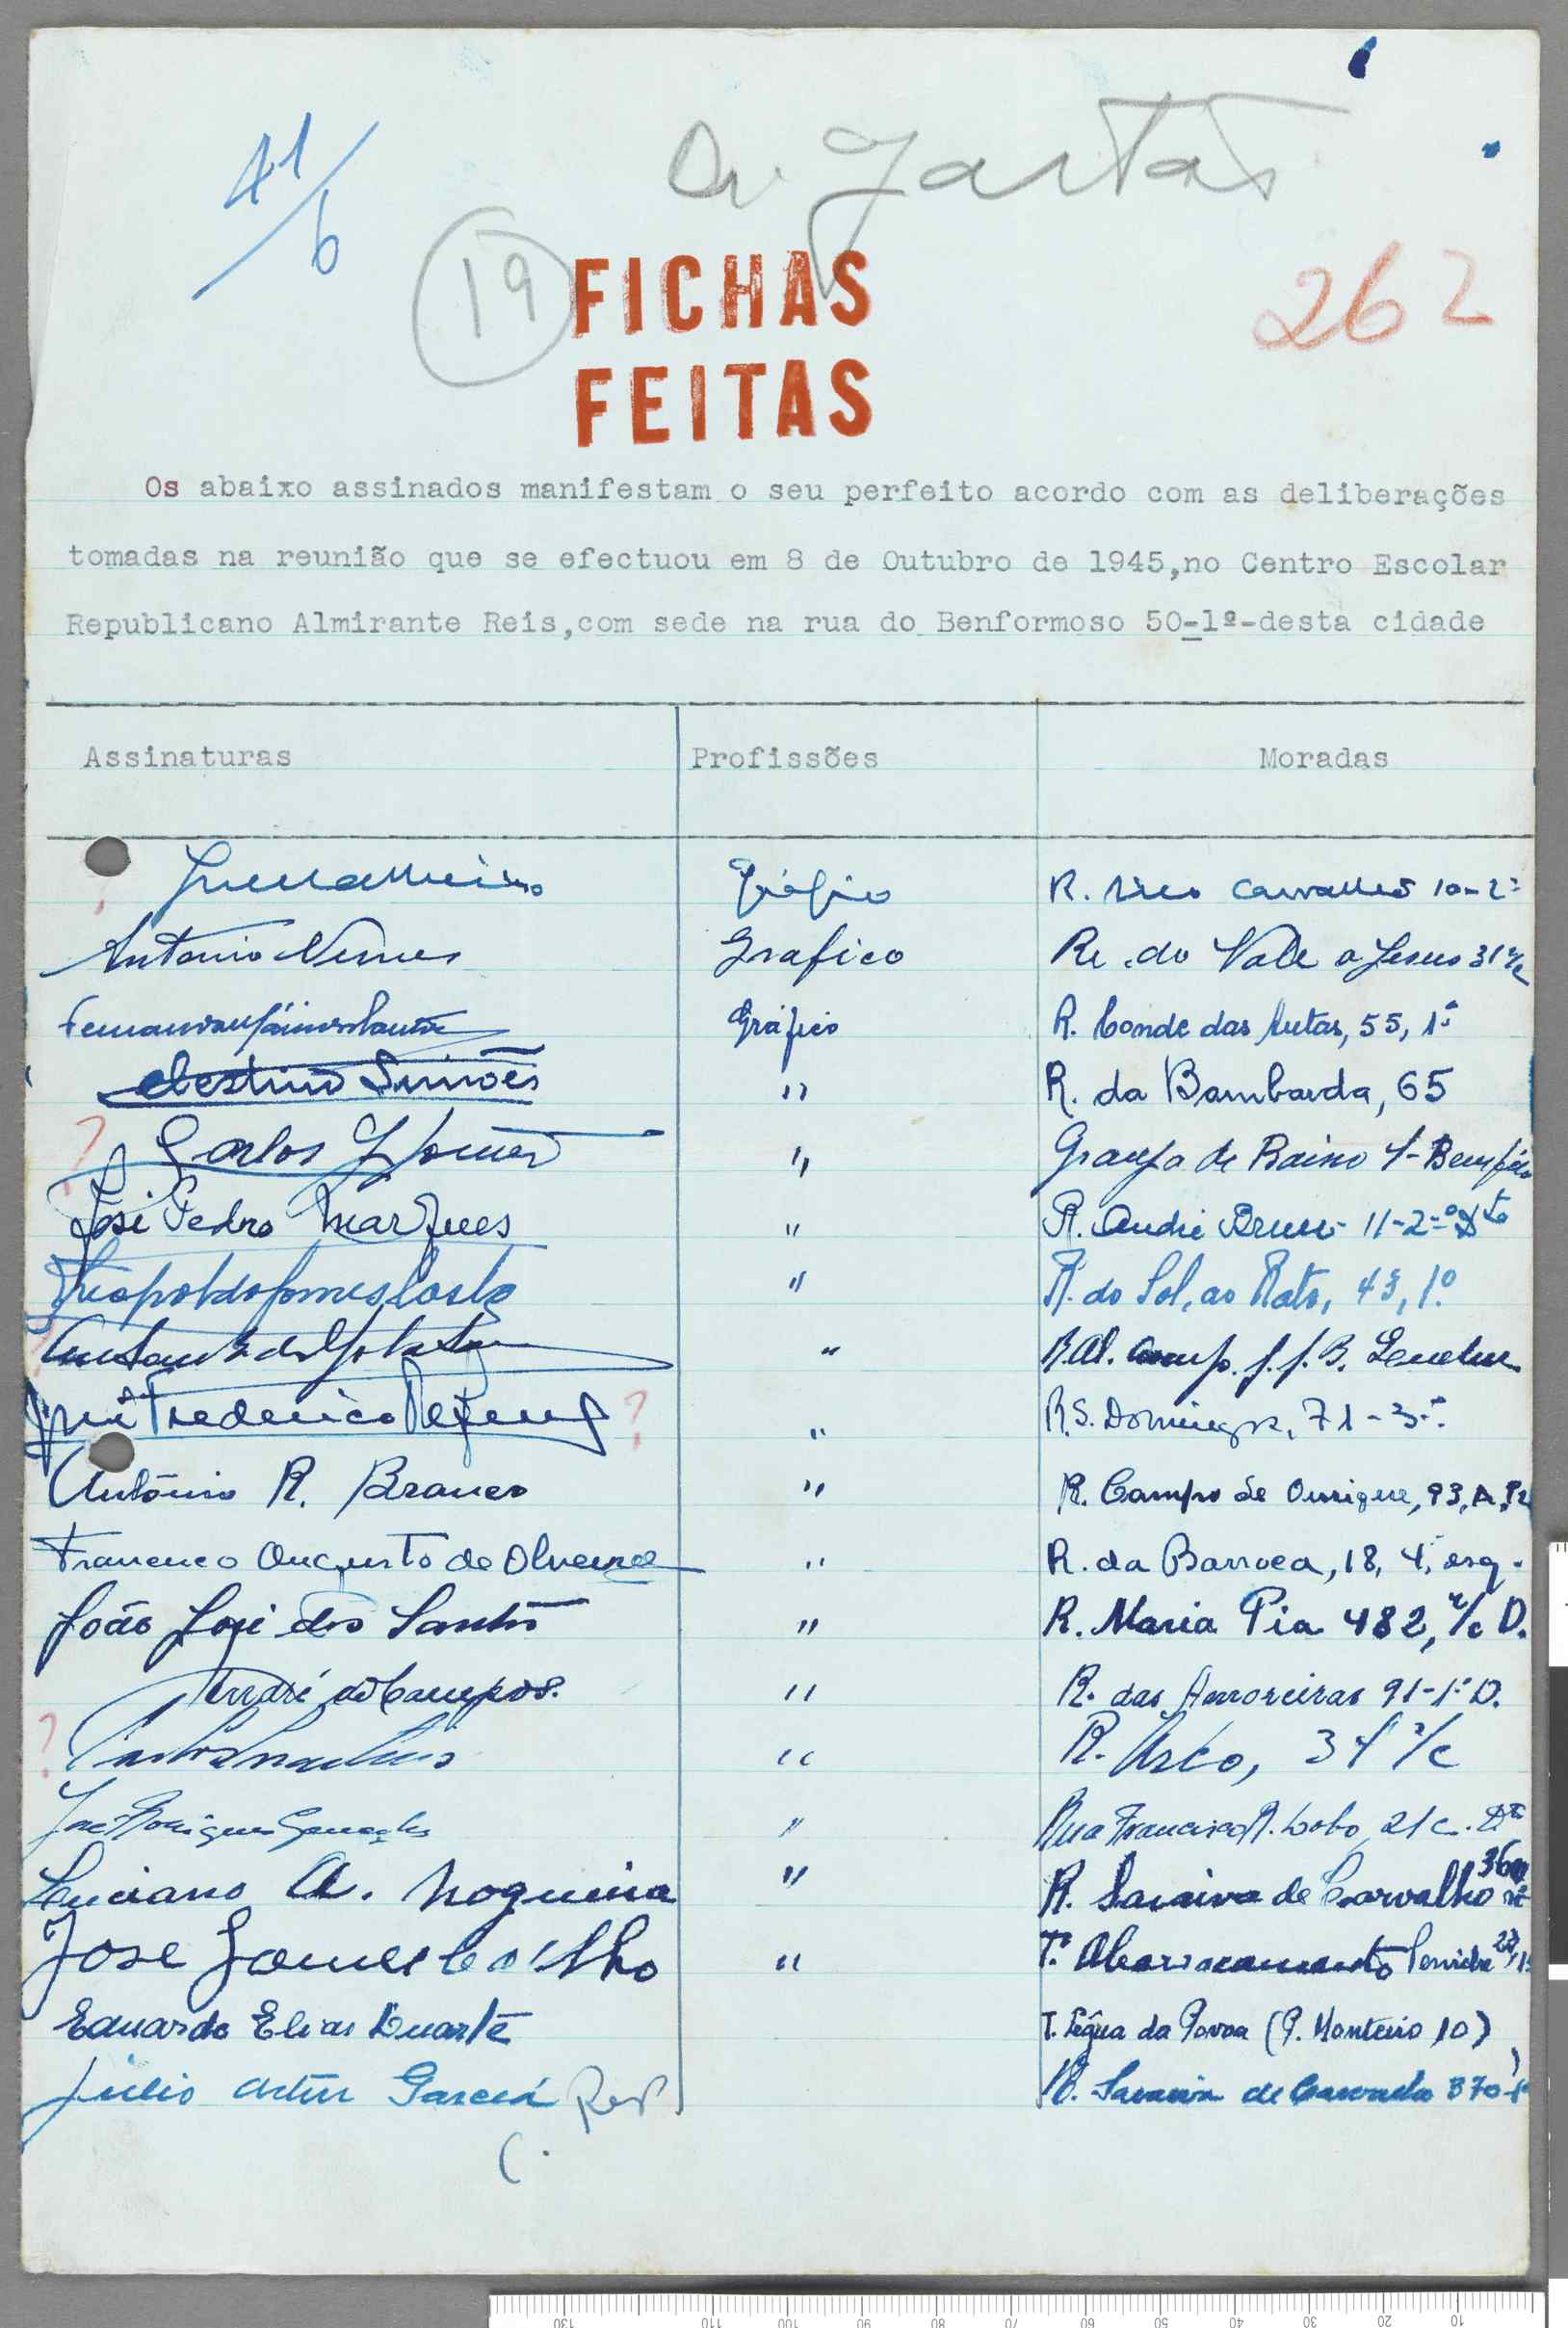 41/6
19
FICHAS
FEITAS
262
Os abaixo assinados manifestam o seu perfeito acordo com as deliberações
tomadas na reunião que se efectuou em 8 de Outubro de 1945,no Centro Escolar
Republicano Almirante Reis,com sede na rua do Benformoso 50-1º-desta cidade
Assinaturas Profissões Moradas
R. 10-2º
Antonio Nunes Grafico do Vale a Jesus 31 r/c
Gráfico R. Conde das Antas, 55, 1º
Celestino Simões " R. da Bombarda, 65
? Carlos " Granja de Baixo
José Pedro Marques " R. André 11-2º Dto
Leopoldo Gomes Costa " R. do Sol, ao Rato, 43, 1º
"
Frederico ? " R. S. Domingos, 71-3º
António R. Branco " R. Campo de Ourique, 93, A
Francisco Augusto de Oliveira " R. da Barroca, 18, 4º, esq.
João José dos Santos " R. Maria Pia 482, r/c D.
de Campos. " R. das Amoreiras 91-1º D.
? " R. Arco, 34 r/c
José Rodrigues " Rua Francisco R. Lobo, 21 c.
Luciano A. Nogueira " R. Saraiva de Carvalho
José Gomes Coelho " T. Abarracamento Peniche
Eduardo Elias Duarte T. Légua da Povoa (P. Monteiro 10)
Júlio Artur Garcia R. Saraiva de Carvalho 370